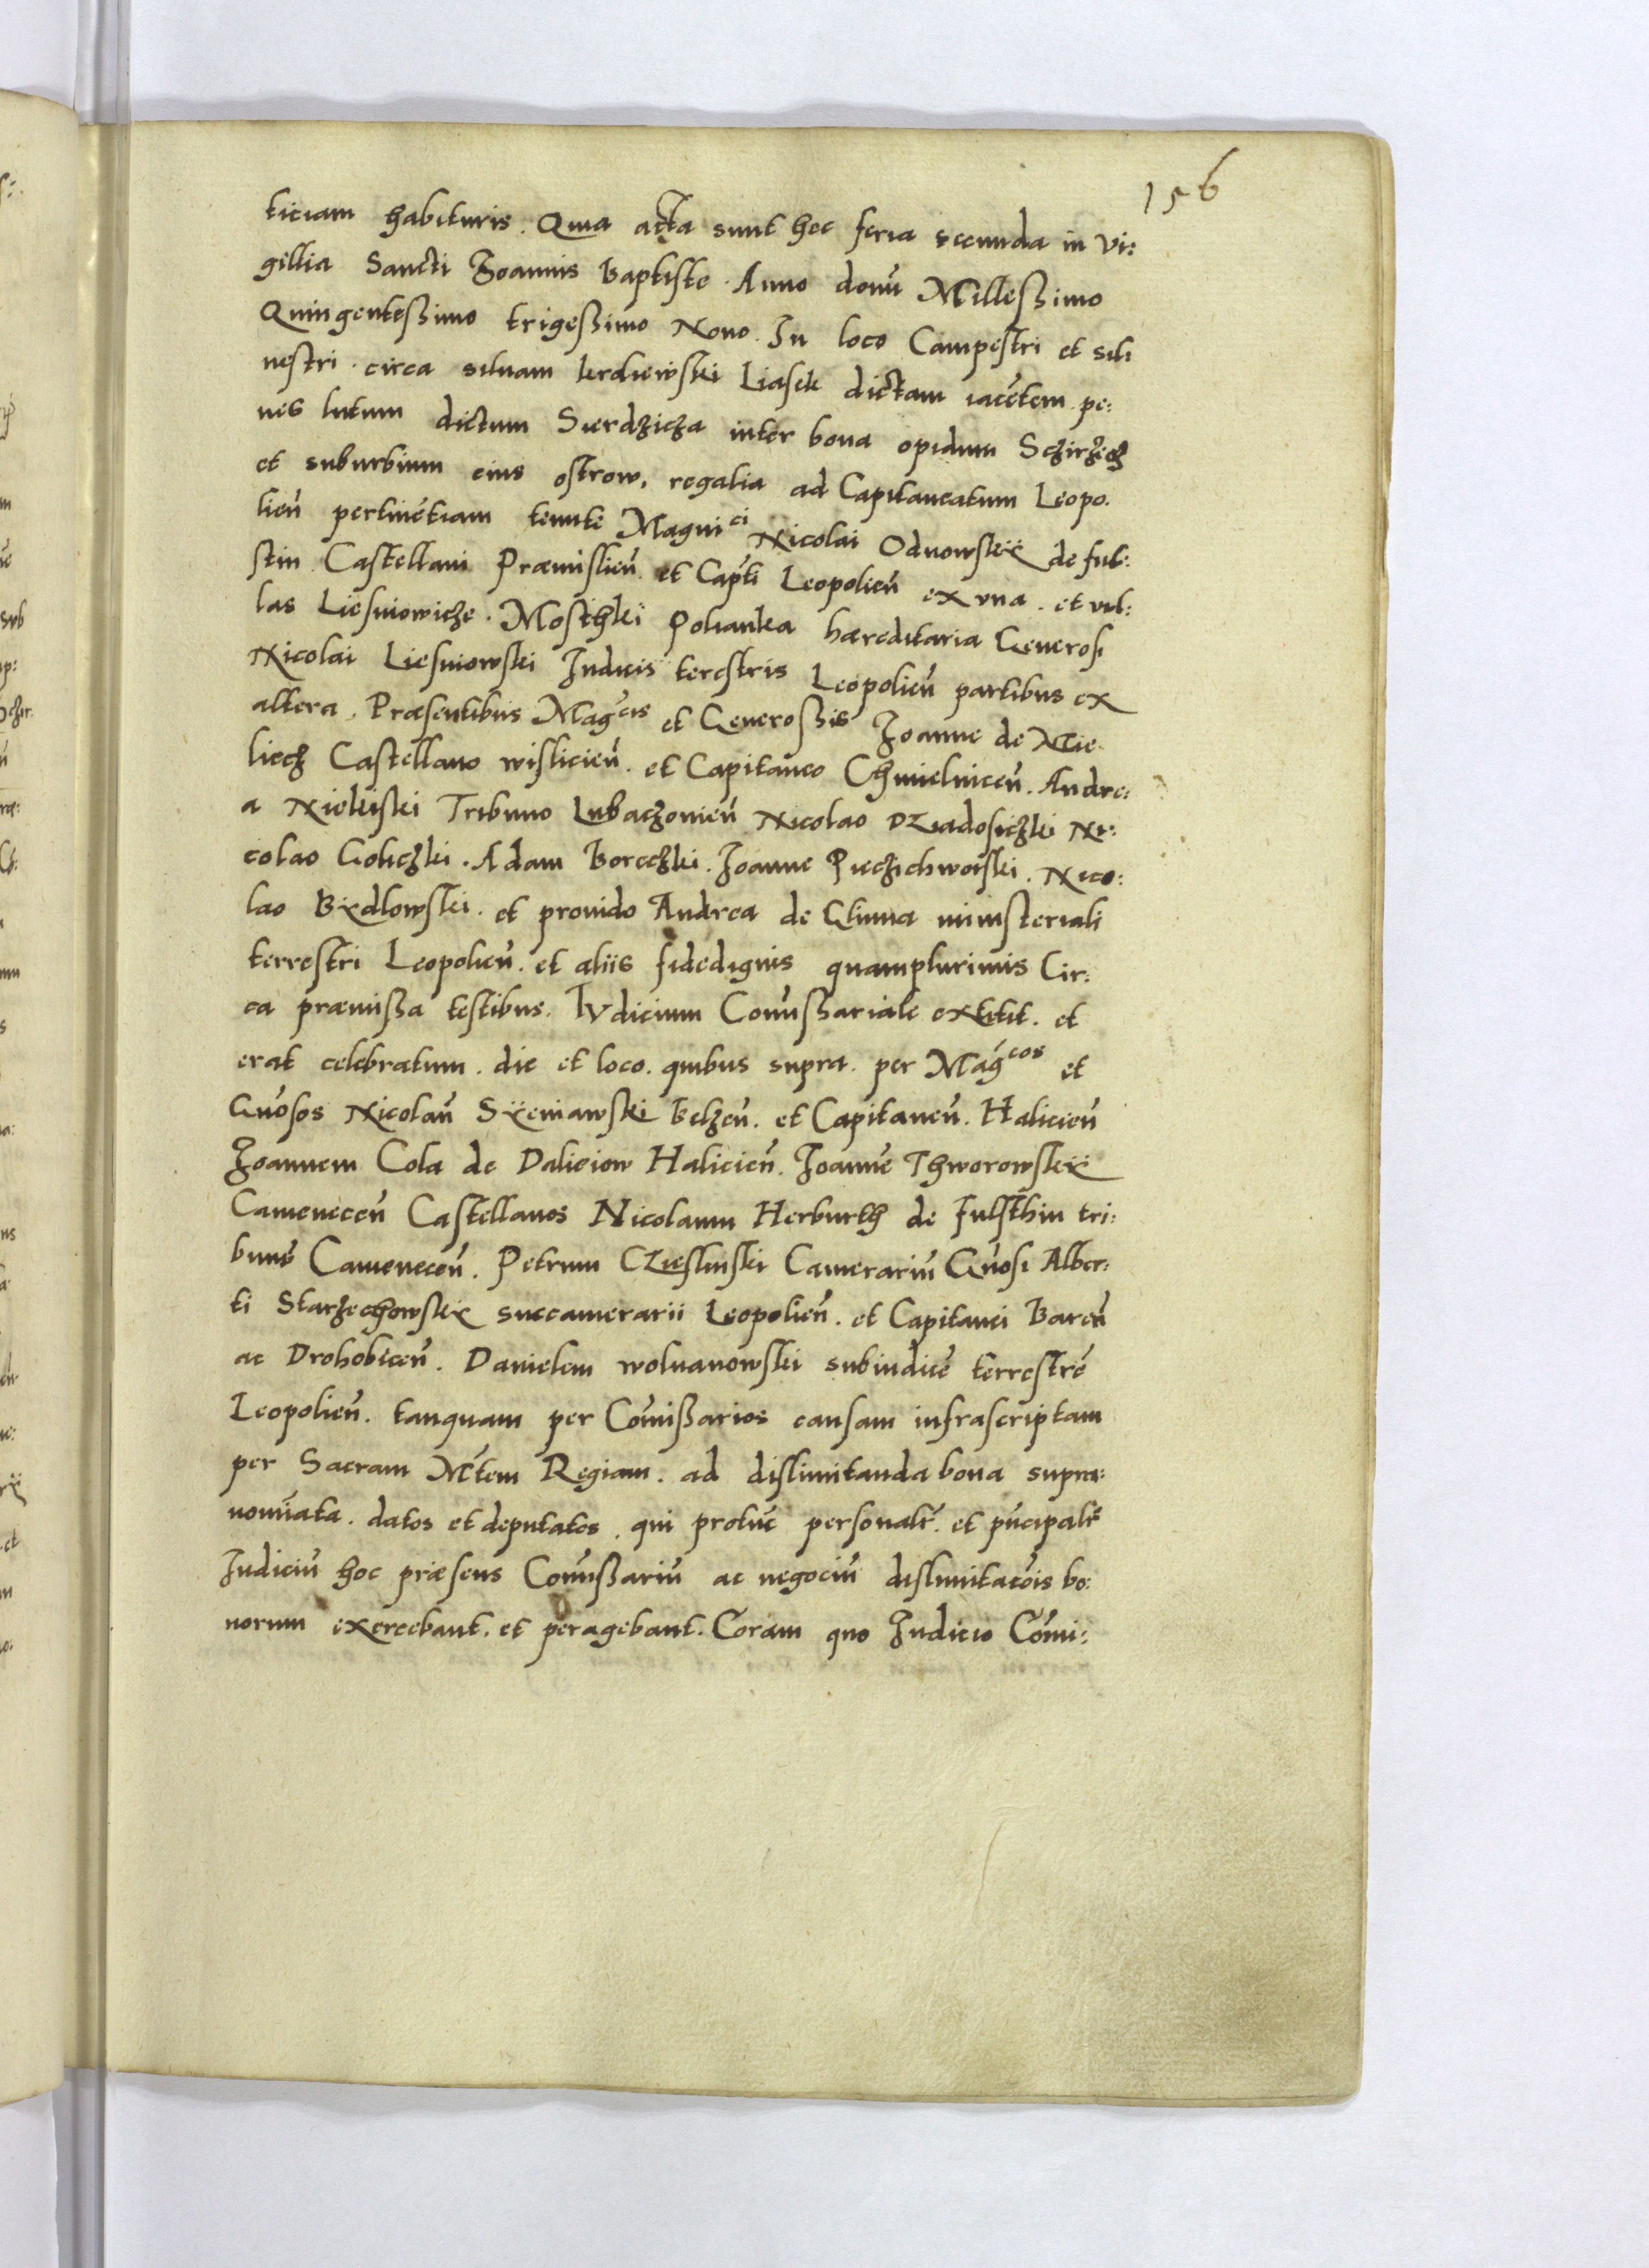 156
ticiam habituris. Qua acta sunt hec feria secunda in Vi:
gillia Sancti Joannis Baptiste. Anno domi Milleßimo
Quingenteßimo trigeßimo Nono. In loco Campestri et silu
nestri. circa siluam kerdiewski Liasek dictam iacētem pe:
nes lutum dictum Sierdzicza inter bona opidum Sczirzecz
et suburbium eius ostrow. regalia ad Capitaneatum Leopo.
lieñ pertinētiam tenute Magnici Nicolai Odnowskÿ de ful:
stin. Castellani Præmislieñ. et Capti Leopolieñ ex vna. et vil:
las Liesniowicze. Mosthki Polianka hæreditaria Generosi
Nicolai Liesniowski Iudicis terestris Leopolieñ partibus ex
altera. Præsentibus Magcis et Generoßis Joanne de Mie
liecz Castellano wislicieñ. et Capitaneo Chmielniceñ. Andre:
a Nielkiski Tribuno Lubaczonieñ Nicolao Dziadosiczki Ni:
colao Goliczki. Adam Boreczki. Joanne Pieczichwoiski. Nico:
lao Bÿdlowski. et prouido Andrea de Glinna ministeriali
terrestri Leopolieñ. et aliis fidedignis quamplurimis Cir:
ca præmißa testibus. Iudicium Comißariale extitit. et
erat celebratum. die et loco. quibus supra. per Magcos et
Gnosos Nicolaū Sÿeniawski Belzeñ. et Capitaneū. Halicieñ
Joannem Cola de Dalieiow Halicieñ. Joannē Thworowskÿ
Cameneceñ Castellanos Nicolaum Herburth de Fulsthin tri:
bunū Cameneceñ. Petrum Czieslinski Camerariū Gnosi Alber:
ti Starzechowskÿ succamerarii Leopolieñ. et Capitanei Bareñ
ac Drohobiceñ. Danielem wolnanowski subiudicē terrestrē
Leopolieñ. tanquam per Comißarios causam infrascriptam
per Sacram Mtem Regiam. ad dislimitanda bona supra:
nomiata. datos et deputatos. qui protūc personalr. et pncipalr
Iudiciū hoc præsens Comißariū ac negociū dislimitacois bo:
norum exercebant. et peragebant. Coram quo Iudicio Comi: